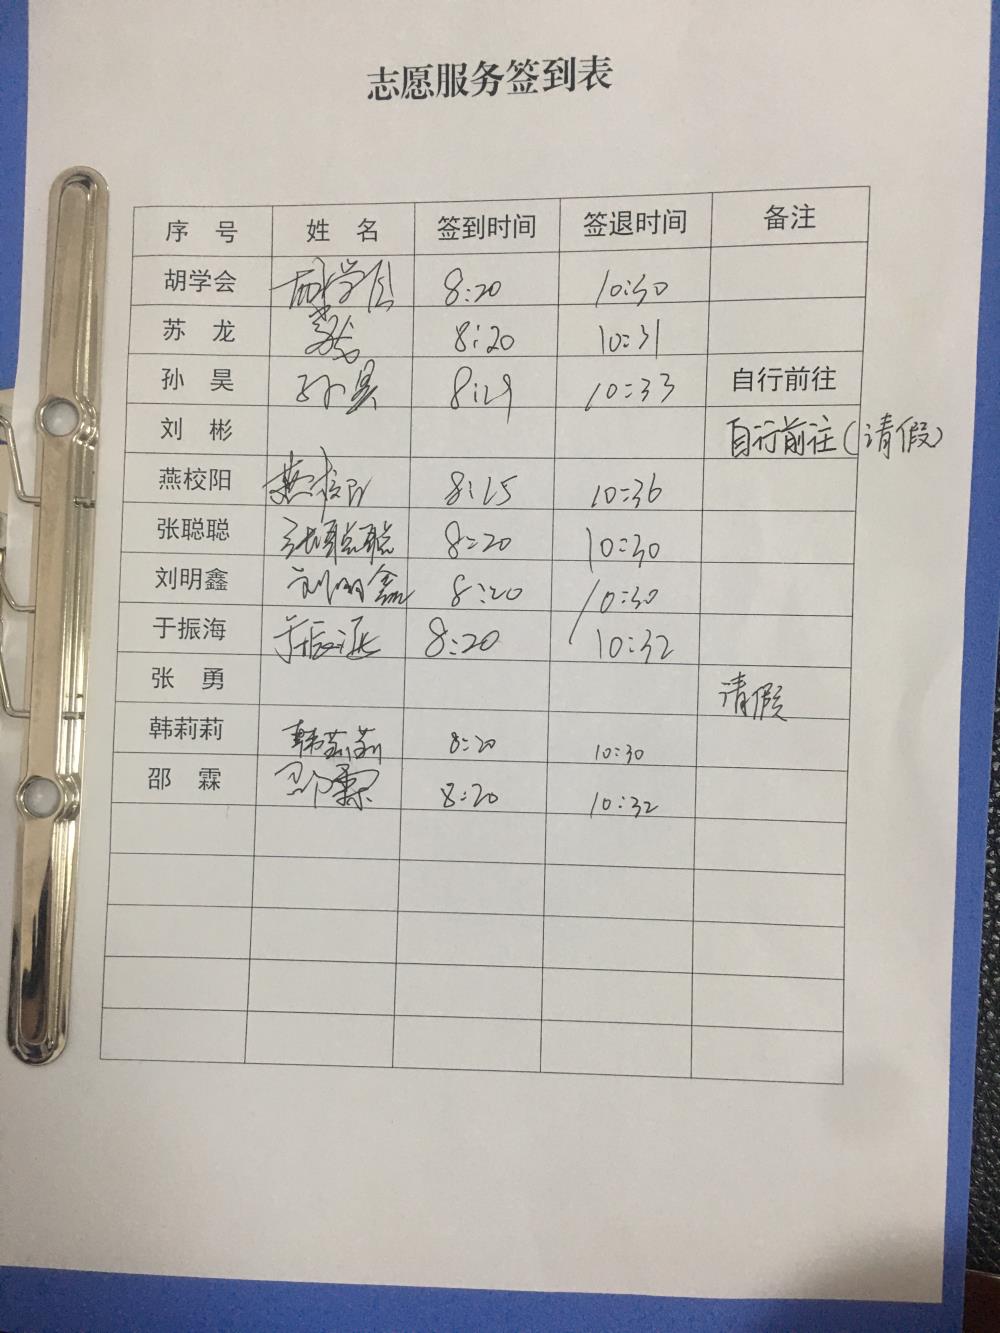 志愿服务签到表
序 号 姓 名 签到时间 签退时间 备注
胡学会 胡学会 8:20 10:30
苏 龙 苏龙 8:20 10:31
孙 昊 孙昊 8:19 10:33 自行前往
刘 彬 自行前往(请假)
燕校阳 燕校阳 8:15 10:36
张聪聪 张聪聪 8:20 10:30
刘明鑫 刘明鑫 8:20 10:30
于振海 于振海 8:20 10:32
张 勇 请假
韩莉莉 韩莉莉 8:20 10:30
邵 霖 邵霖 8:20 10:32